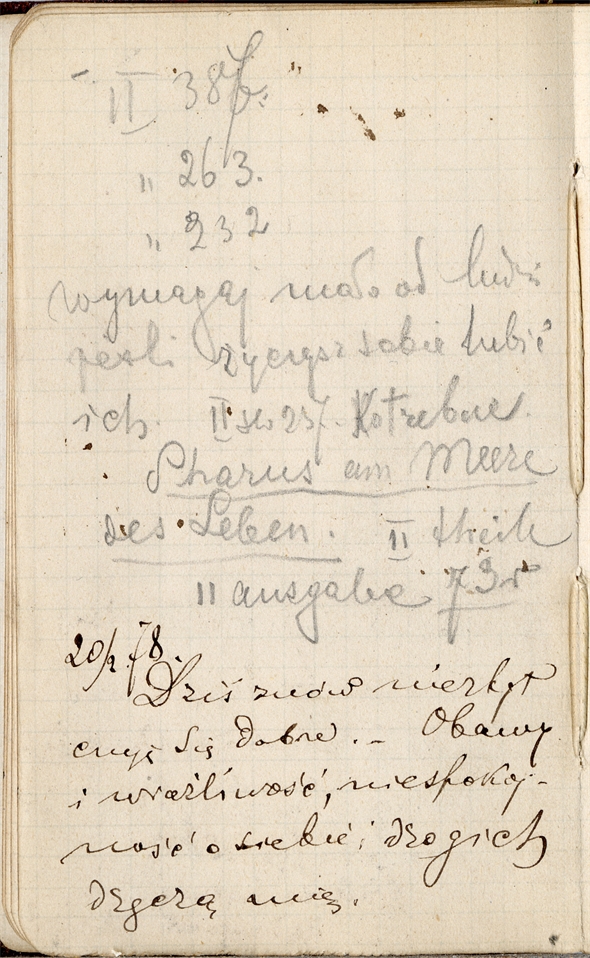 II 387.
" 263.
" 232
wymagaj mało od ludzi
jeżli życzysz sobie lubić
ich. II str 237. Kotzebue.
Pharus am Meere
des Leben. II theile
11 ausgabe 73r
20/2 78.
Dziś znów niezbyt
czuję się dobre. - Obawy
i wrażliwość, niespokoj-
ność o siebie i drogich
dręczą mię.